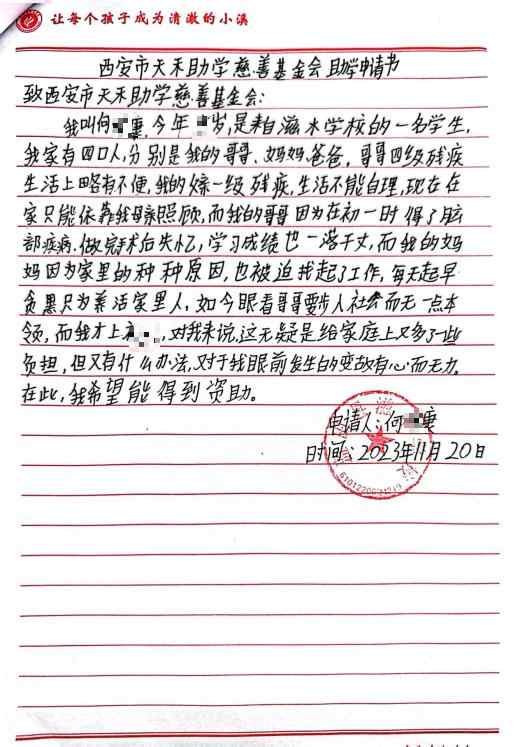 让每个孩子成为清澈的小溪
西安市天禾助学慈善基金会助学申请书
致西安市天禾助学慈善基金会:
我叫何 蘘,今年 岁,是来自滋水学校的一名学生,
我家有四口人,分别是我的哥哥、妈妈、爸爸,哥哥四级残疾
生活上略有不便,我的嫁一级残疾,生活不能自理,现在在
家只能依靠我母亲照顾,而我的哥哥因为在初一时得了脑
部疾病,做完手术后失忆,学习成绩也一落千丈,而我的妈
妈因为家里的种种原因,也被迫找起了工作,每天起早
贪黑只为养活家里人,如今眼看哥哥要步入社会而无一点本
领,而我才上 ,对我来说,这无疑是给家庭上又多了一些
负担,但又有什么办法,又对于我眼前发生的变故有心而无力,
在此,我希望能得到资助。
申请人:何 蘘
时间:2023年11月20日